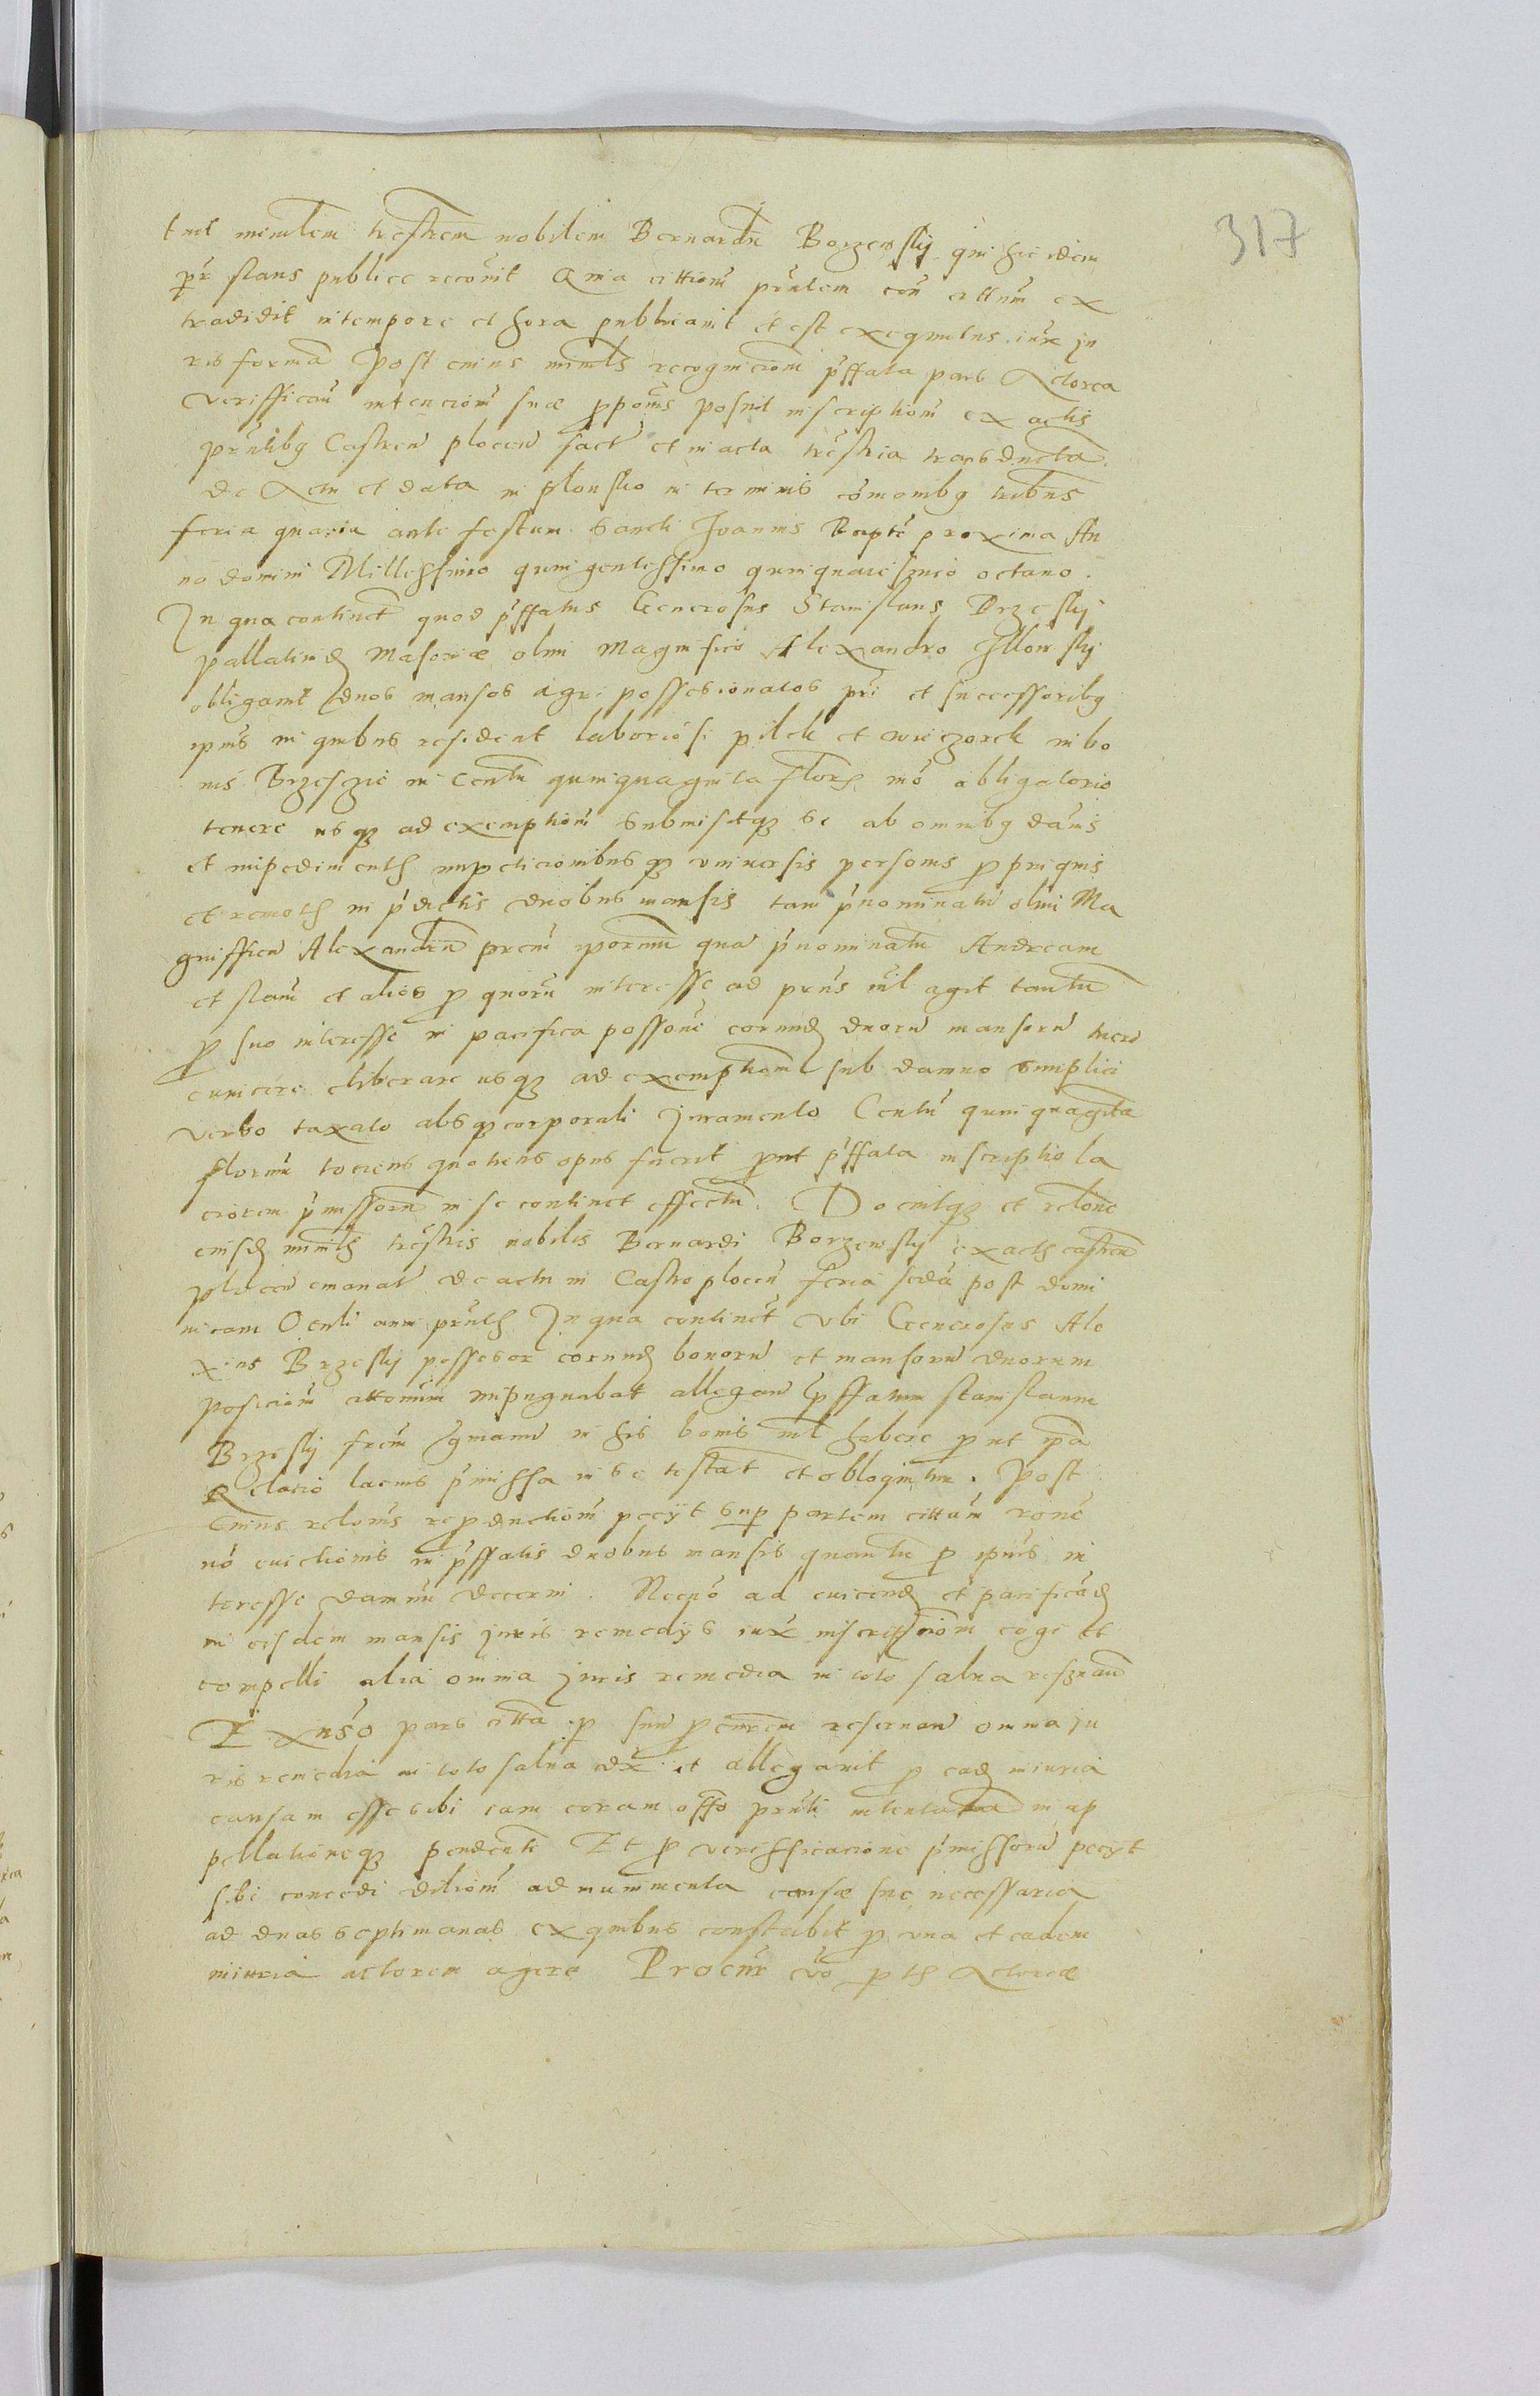 317
tut ministlem trestrem nobilem Bernardū Borzewskij qui hic idem
pr stans publice recōuit Quia cittionē prntem con cittum ex
tradidit in tempore et hora publicauit et est exequutus iux ju
ris formā Post cuius minstls recognicionē pffata pars Actorea
verifficań intencionē suæ proponēs posuit inscriptionē ex actis
prntibus Castren plocen fact et in acta trestria transductā
de Actu et data in plonsko in terminis cōmonibus tribus
feria quarta ante festum Sancti Joannis Baptē proxima An
no domini Millessimo quingentessimo quinquaiesimo octauo.
In qua continet quod pffatus Generosus Stanislaus Brzeskij
pallatinid Masoviæ olim Magnifico Alexandro Illowskij
obligauit duos mansos agri possesionatos pri et successoribus
ipius in quibus resident laboriosi pilch et wieczorek in bo
nis Brzeszie in Centū quinquaginta florens mō obligatorio
tenere usque ad exemptionē Submisitque se ab omnibus dānis
et impedimentis impeticionibusque vniuersis personis propinquis
et remotis in pdictis duobus mansis tam pnominatū olim Ma
gnifficū Alexandrū prem iporum qua pnominatū Andream
et stanē et alios pro quorū interesse ad prns nil agit tantū
pro suo interesse in pacifica possone eorumd duorū mansorū tueri
euincere eliberare usque ad exemptionē sub damno simplici
verbo taxato absque corporali Juramento Centū quinquaginta
florenū tociens quotiens opus fuerit prout pffata inscriptio la
ciorem pmissorū in se continet effectū. Docuitque et relone
eiusd ministlis trestris nobilis Bernardi Borzewskij ex actis castren
plocen emanat de actu in Castro plocen feria scda post domi
nicam Oculi anni prntis In qua continet vbi Generosus Ale
xius Brzeskij possesor eorumd bonorū et mansorū duorum
posicionē attonum impugnabat allegan pffatum stanislaum
Brzeskij frem germanū in his bonis nil habere prout ipa
Relatio lacius pmissa in se testat et obloquitur. Post
Cuius relonis reproductionē pecijt super partem cittatā rone
nō euictionis in pffatis duobus mansis quantū pro ipius in
teresse damnū decerni. Necnō ad euicend et pacificād
in eisdem mansis juris remedijs iux inscriptionē cogi et
compelli alia omnia juris remedia in toto salua reseruan
Ex aduso pars citta per suū procurem reseruan omnia ju
ris remedia in toto salua dxit et allegauit pro ead iniuria
causam esse sibi iam coram offo prnti intentatā in ap
pellationeque pendentē Et pro verifficacione pmissorū pecijt
sibi concedi dilionē ad munimenta causæ suæ necessaria
ad duas septimanas ex quibus constabit pro una et eadem
iniuria actorem agere Procur vō ptis Actoreæ